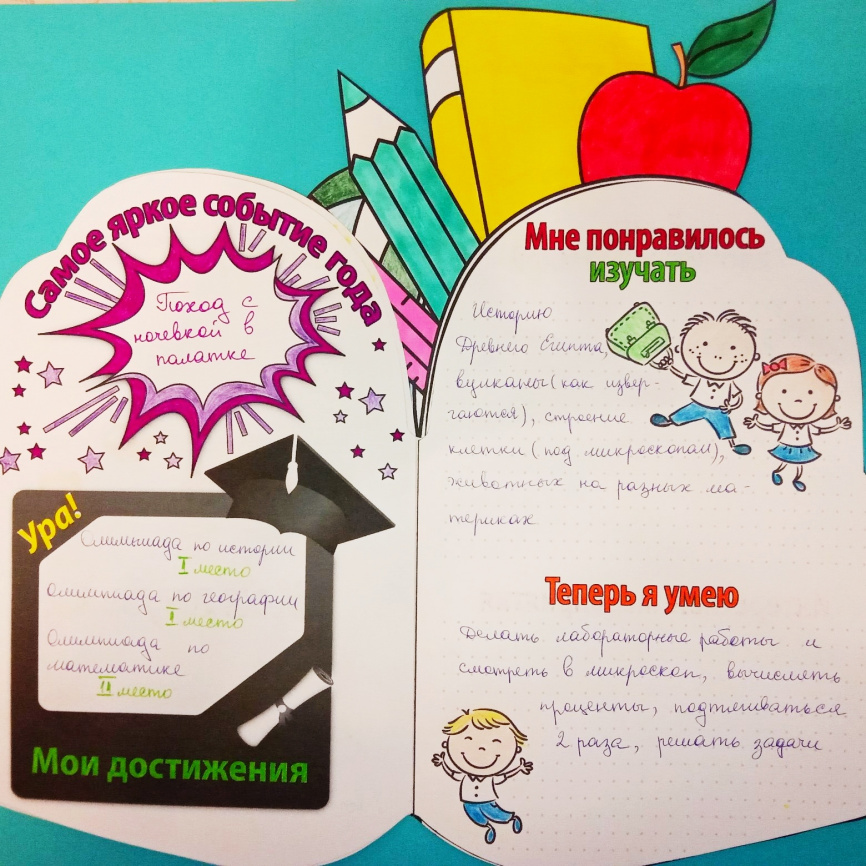 Самое яркое событие года
Поход с
ночевкой в
палатке
Ура!
Олимпиада по истории
I место
Олимпиада по географии
I место
Олимпиада по
математике
II место
Мои достижения
Мне понравилось
изучать
Историю
Древнего Египта,
вулканы (как извер-
гаются), строение
клетки (под микроскопом),
животных на разных ма-
териках
Теперь я умею
Делать лабораторные работы и
смотреть в микроскоп, вычислять
проценты, подтягиваться
2 раза, решать задачи